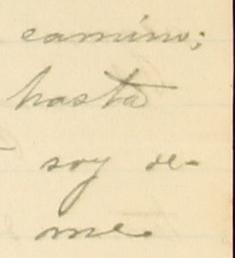 camino;
hasta
soy de-
me